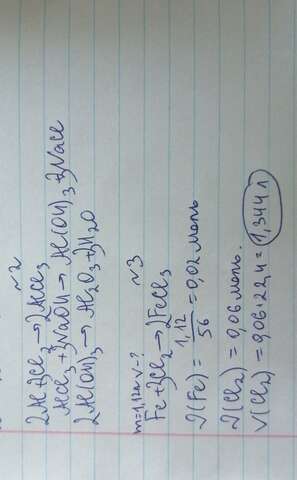 №2
2Al+3Cl₂→2AlCl₃
AlCl₃+3NaOH→Al(OH)₃+3NaCl
2Al(OH)₃→Al₂O₃+3H₂O
№3
m=1,12г V-?
Fe+3Cl₂→2FeCl₃
ν(Fe) = 1,12/56 = 0,02 моль
ν(Cl₂) = 0,06 моль.
V(Cl₂) = 0,06·22,4 = 1,344 л